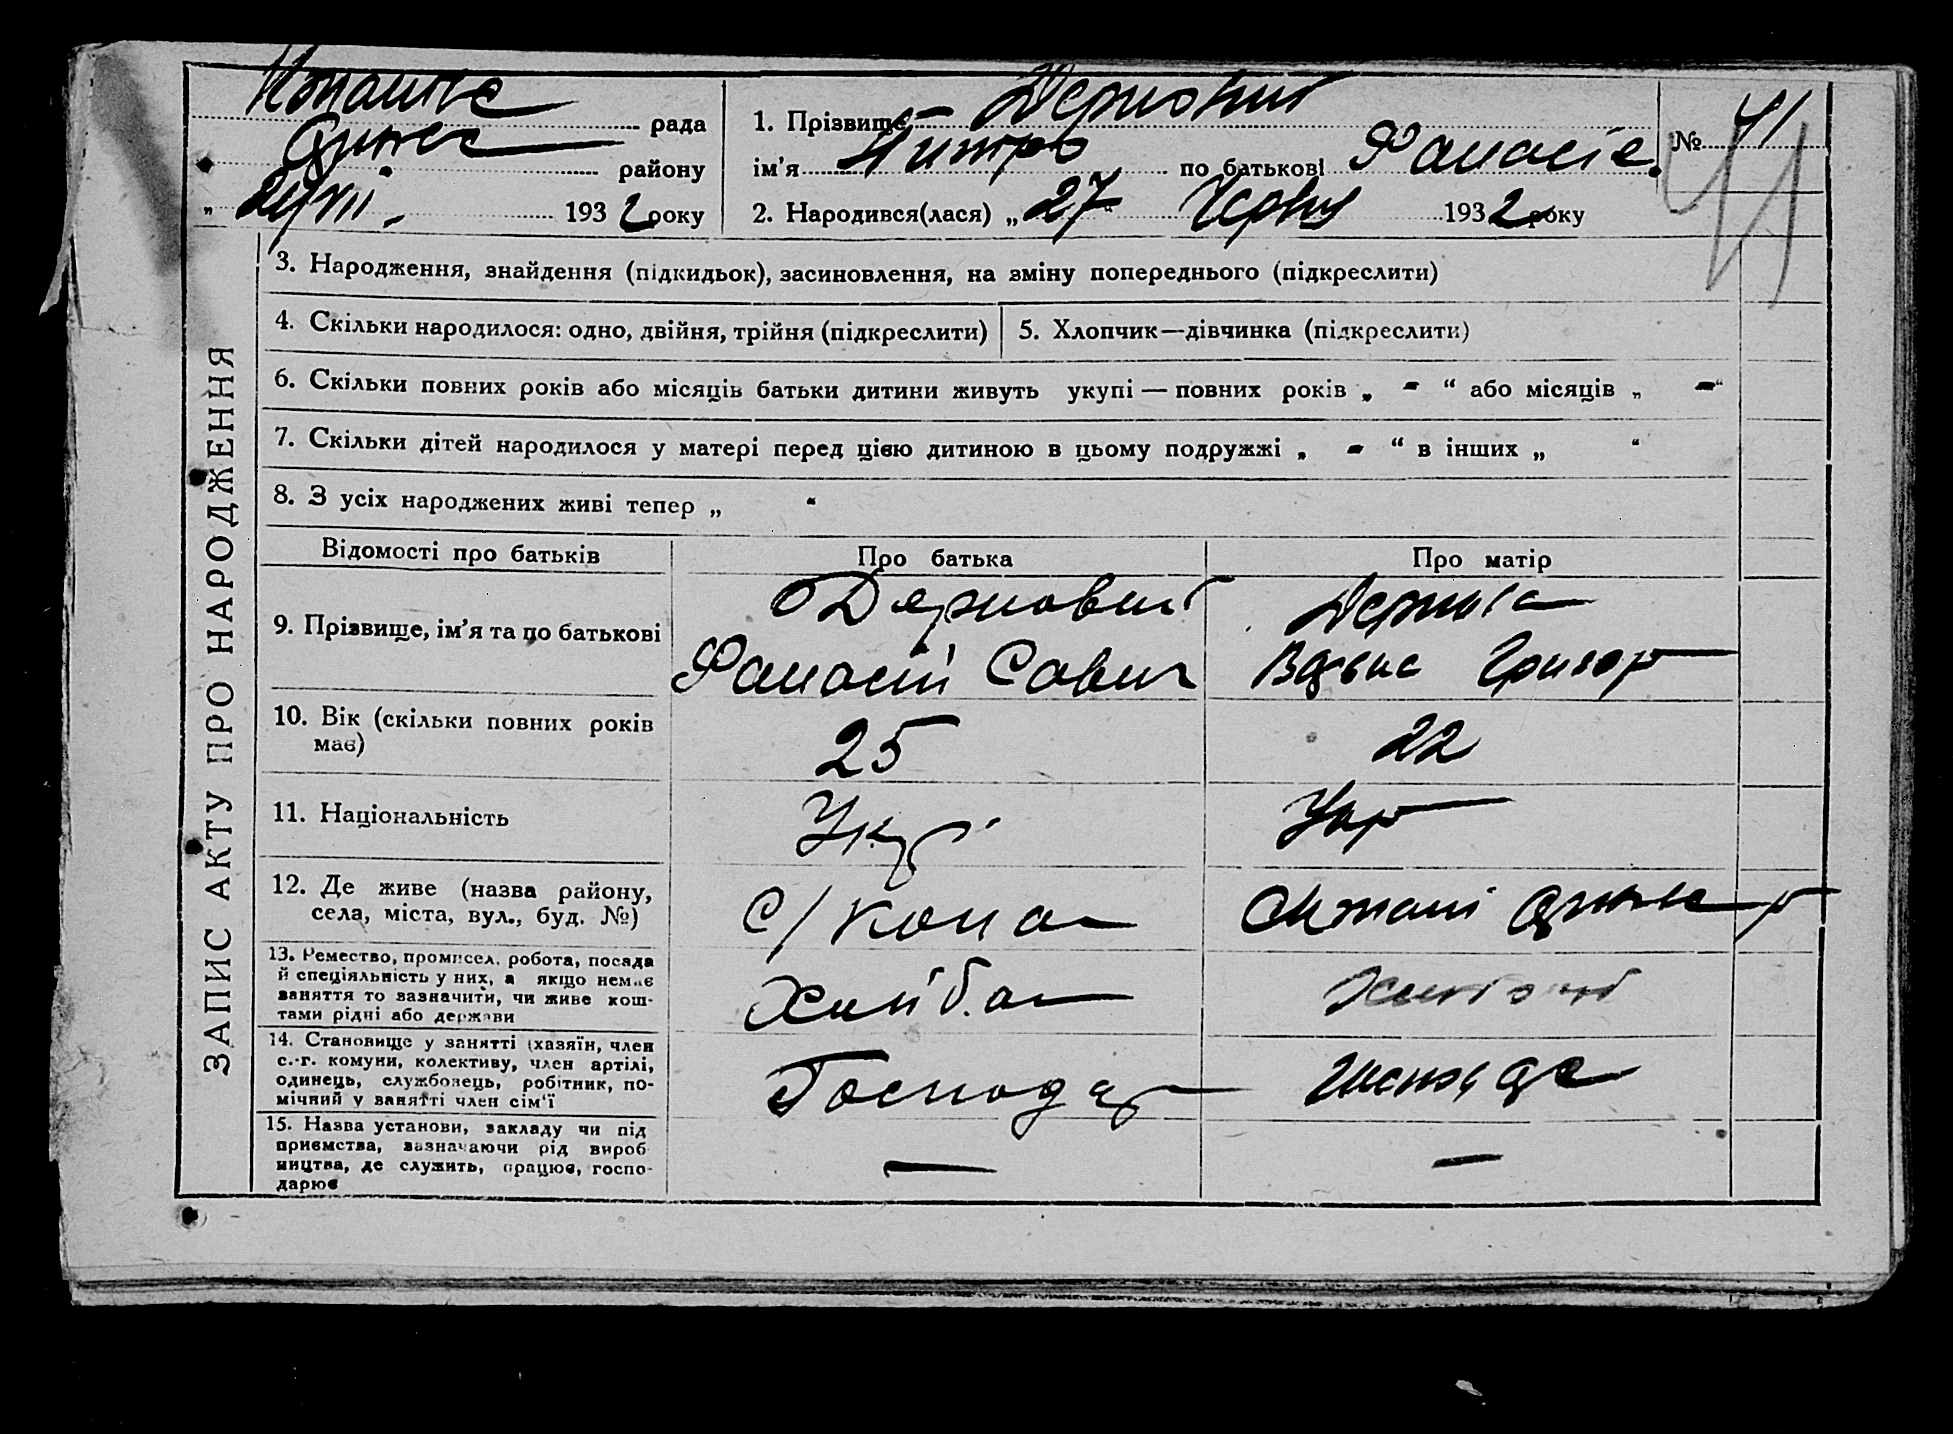 рада
району
193 2 року
1. Прізвище
ім'я по батькові Фанасіє.
2. Народився(лася) „ 27 “ Червн 193 2 року
№ 41
41
ЗАПИС АКТУ ПРО НАРОДЖЕННЯ
3. Народження, знайдення (підкидьок), засиновлення, на зміну попереднього (підкреслити)
4. Скільки народилося: одно, двійня, трійня (підкреслити)
5. Хлопчик—дівчинка (підкреслити)
6. Скільки повних років або місяців батьки дитини живуть укупі — повних років „ - “ або місяців „ - “
7. Скільки дітей народилося у матері перед цією дитиною в цьому подружжі „ - “ в інших „ “
8. З усіх народжених живі тепер „ “
Відомості про батьків
Про батька
Про матір
9. Прізвище, ім'я та по батькові
Фанасій Савич
Григор
10. Вік (скільки повних років
має)
25
22
11. Національність
Укр
Укр
12. Де живе (назва району,
села, міста, вул., буд. №)
13. Ремество, промисел, робота, посада
й спеціяльність у них, а якщо немає
заняття то зазначити, чи живе кош-
тами рідні або держави
14. Становище у занятті (хазяїн, член
с.-г. комуни, колективу, член артілі,
одинець, службовець, робітник, по-
мічний у занятті член сім'ї
Господар
15. Назва установи, закладу чи під
приємства, зазначаючи рід вироб
ництва, де служить, працює, госпо-
дарює
—
—